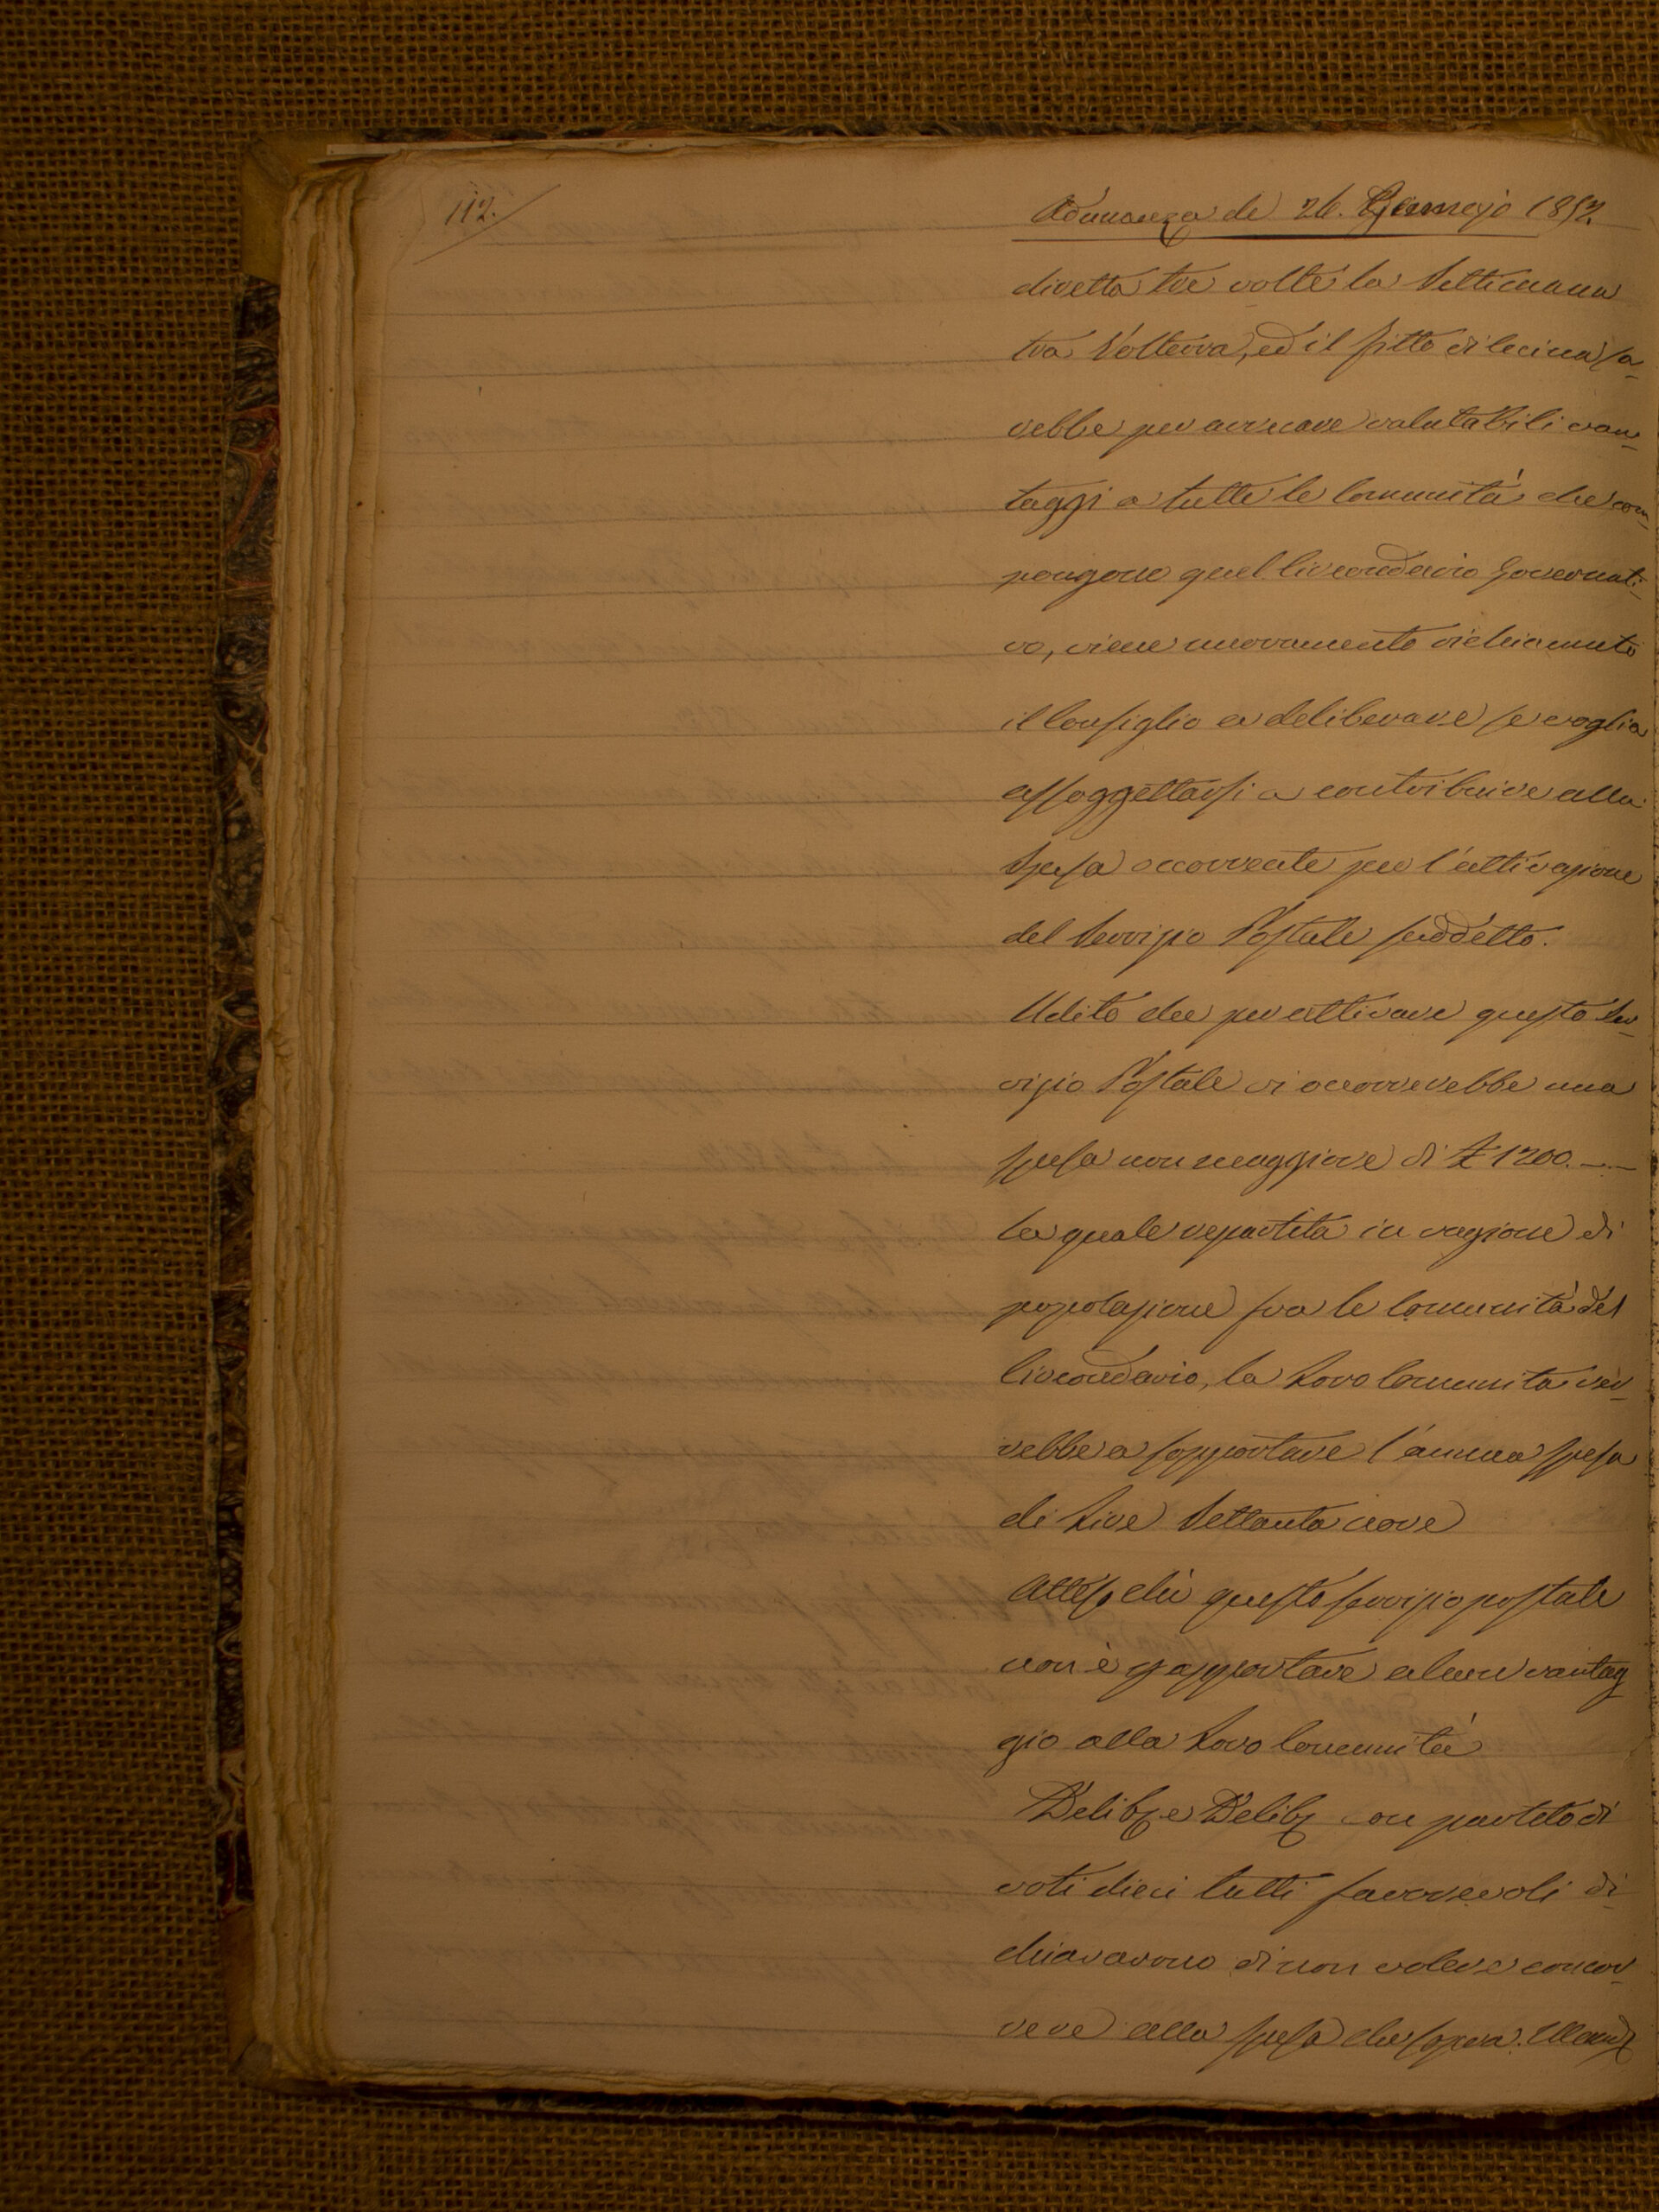 112.
Adunanza de 26. Gennajo 1852
diretta tre volte la Settimana
tra Volterra, ed il Fitto di Cecina sa-
rebbe per arrecare valutabili van-
taggi a tutte le Comunità che com-
pongono quel Circondario Governati-
vo, viene nuovamente richiamato
il Consiglio a deliberare se voglia
assoggettarsi a contribuire alla
Spesa occorrente per l'attivazione
del Servizio Postale suddetto.
Udito che per attivare questo Ser-
vizio Postale vi occorrerebbe una
spesa non maggiore di £ 1200.—.—
la quale repartita in ragione di
popolazione fra le Comunità del
Circondario, la Loro Comunità ver-
rebbe a sopportare l'annua spesa
di Lire Settanta nove
Atteso chè questo servizio postale
non è p apportare alcun vantag
gio alla Loro Comunità
Delib e Delib con partito di
voti dieci tutti favorevoli di
chiararono di non volere concor-
rere alla spesa che sopra. Mand